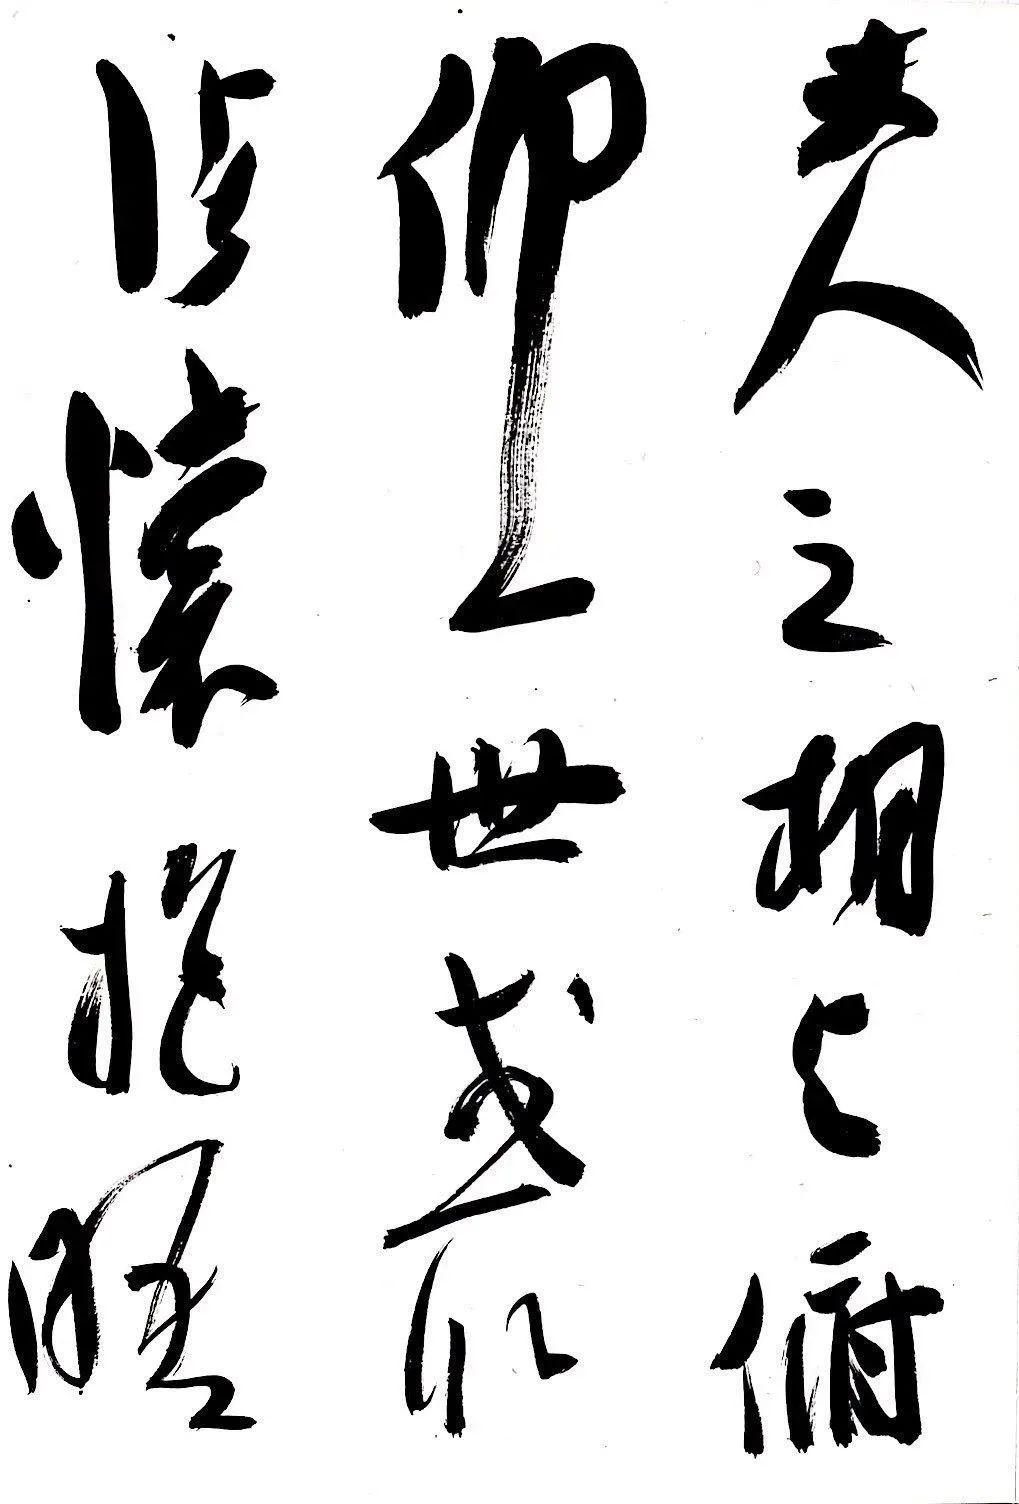 夫人之相与俯
仰一世或取
诸懷抱晤